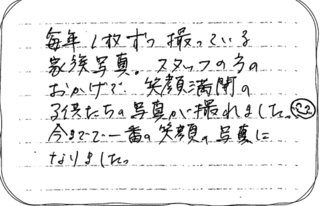 毎年1枚ずつ撮っている
家族写真。スタッフの方の
おかげで 笑顔満開の
子供たちの写真が撮れました。
今までで一番の笑顔の写真に
なりました。